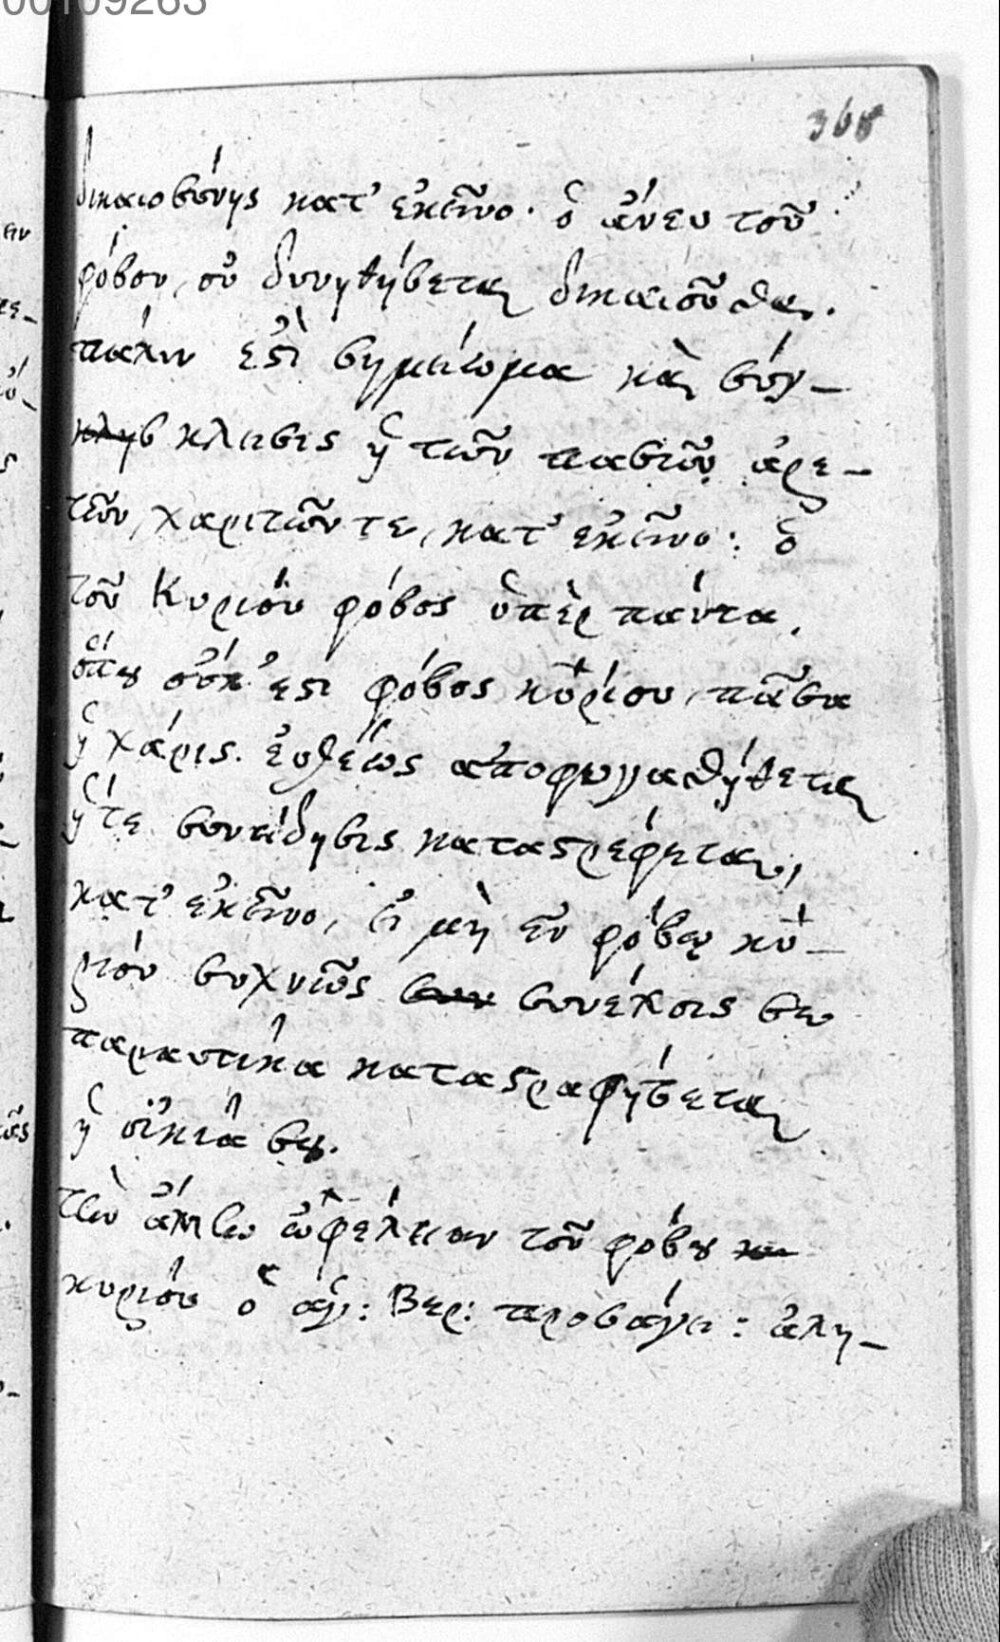 00109263
368
δικαιοσύνης κατ' ἐκεῖνο· ὁ ἄνευ τοῦ
φόβου, οὐ δυνηθήσεται δικαιοῦσθαι.
πάλιν ἐστὶ σημείωμα καὶ σύγ-
κλησ κλεισις ἡ τῶν πασῶν ἀρε-
τῶν, χαριτῶν τε, κατ' ἐκεῖνο: ὁ
τοῦ Κυρίου φόβος ὑπὲρ πάντα,
ὅπου οὐκ ἔστι φόβος κυρίου, πᾶσα
ἡ χάρις εὐθέως
ἥτε συνείδησις καταστρέφεται,
κατ' ἐκεῖνο, εἰ μὴ ἐν φόβῳ κυ-
ρίου συχνῶς συν συνέχοις σεω
παραυτίκα καταστραφήσεται
ἡ οἰκία σου.
τὴν ἄλλην ὠφέλειαν τοῦ φόβου
κυρίου ὁ ἁγ: Βερ: προσάγει: ἀλη-